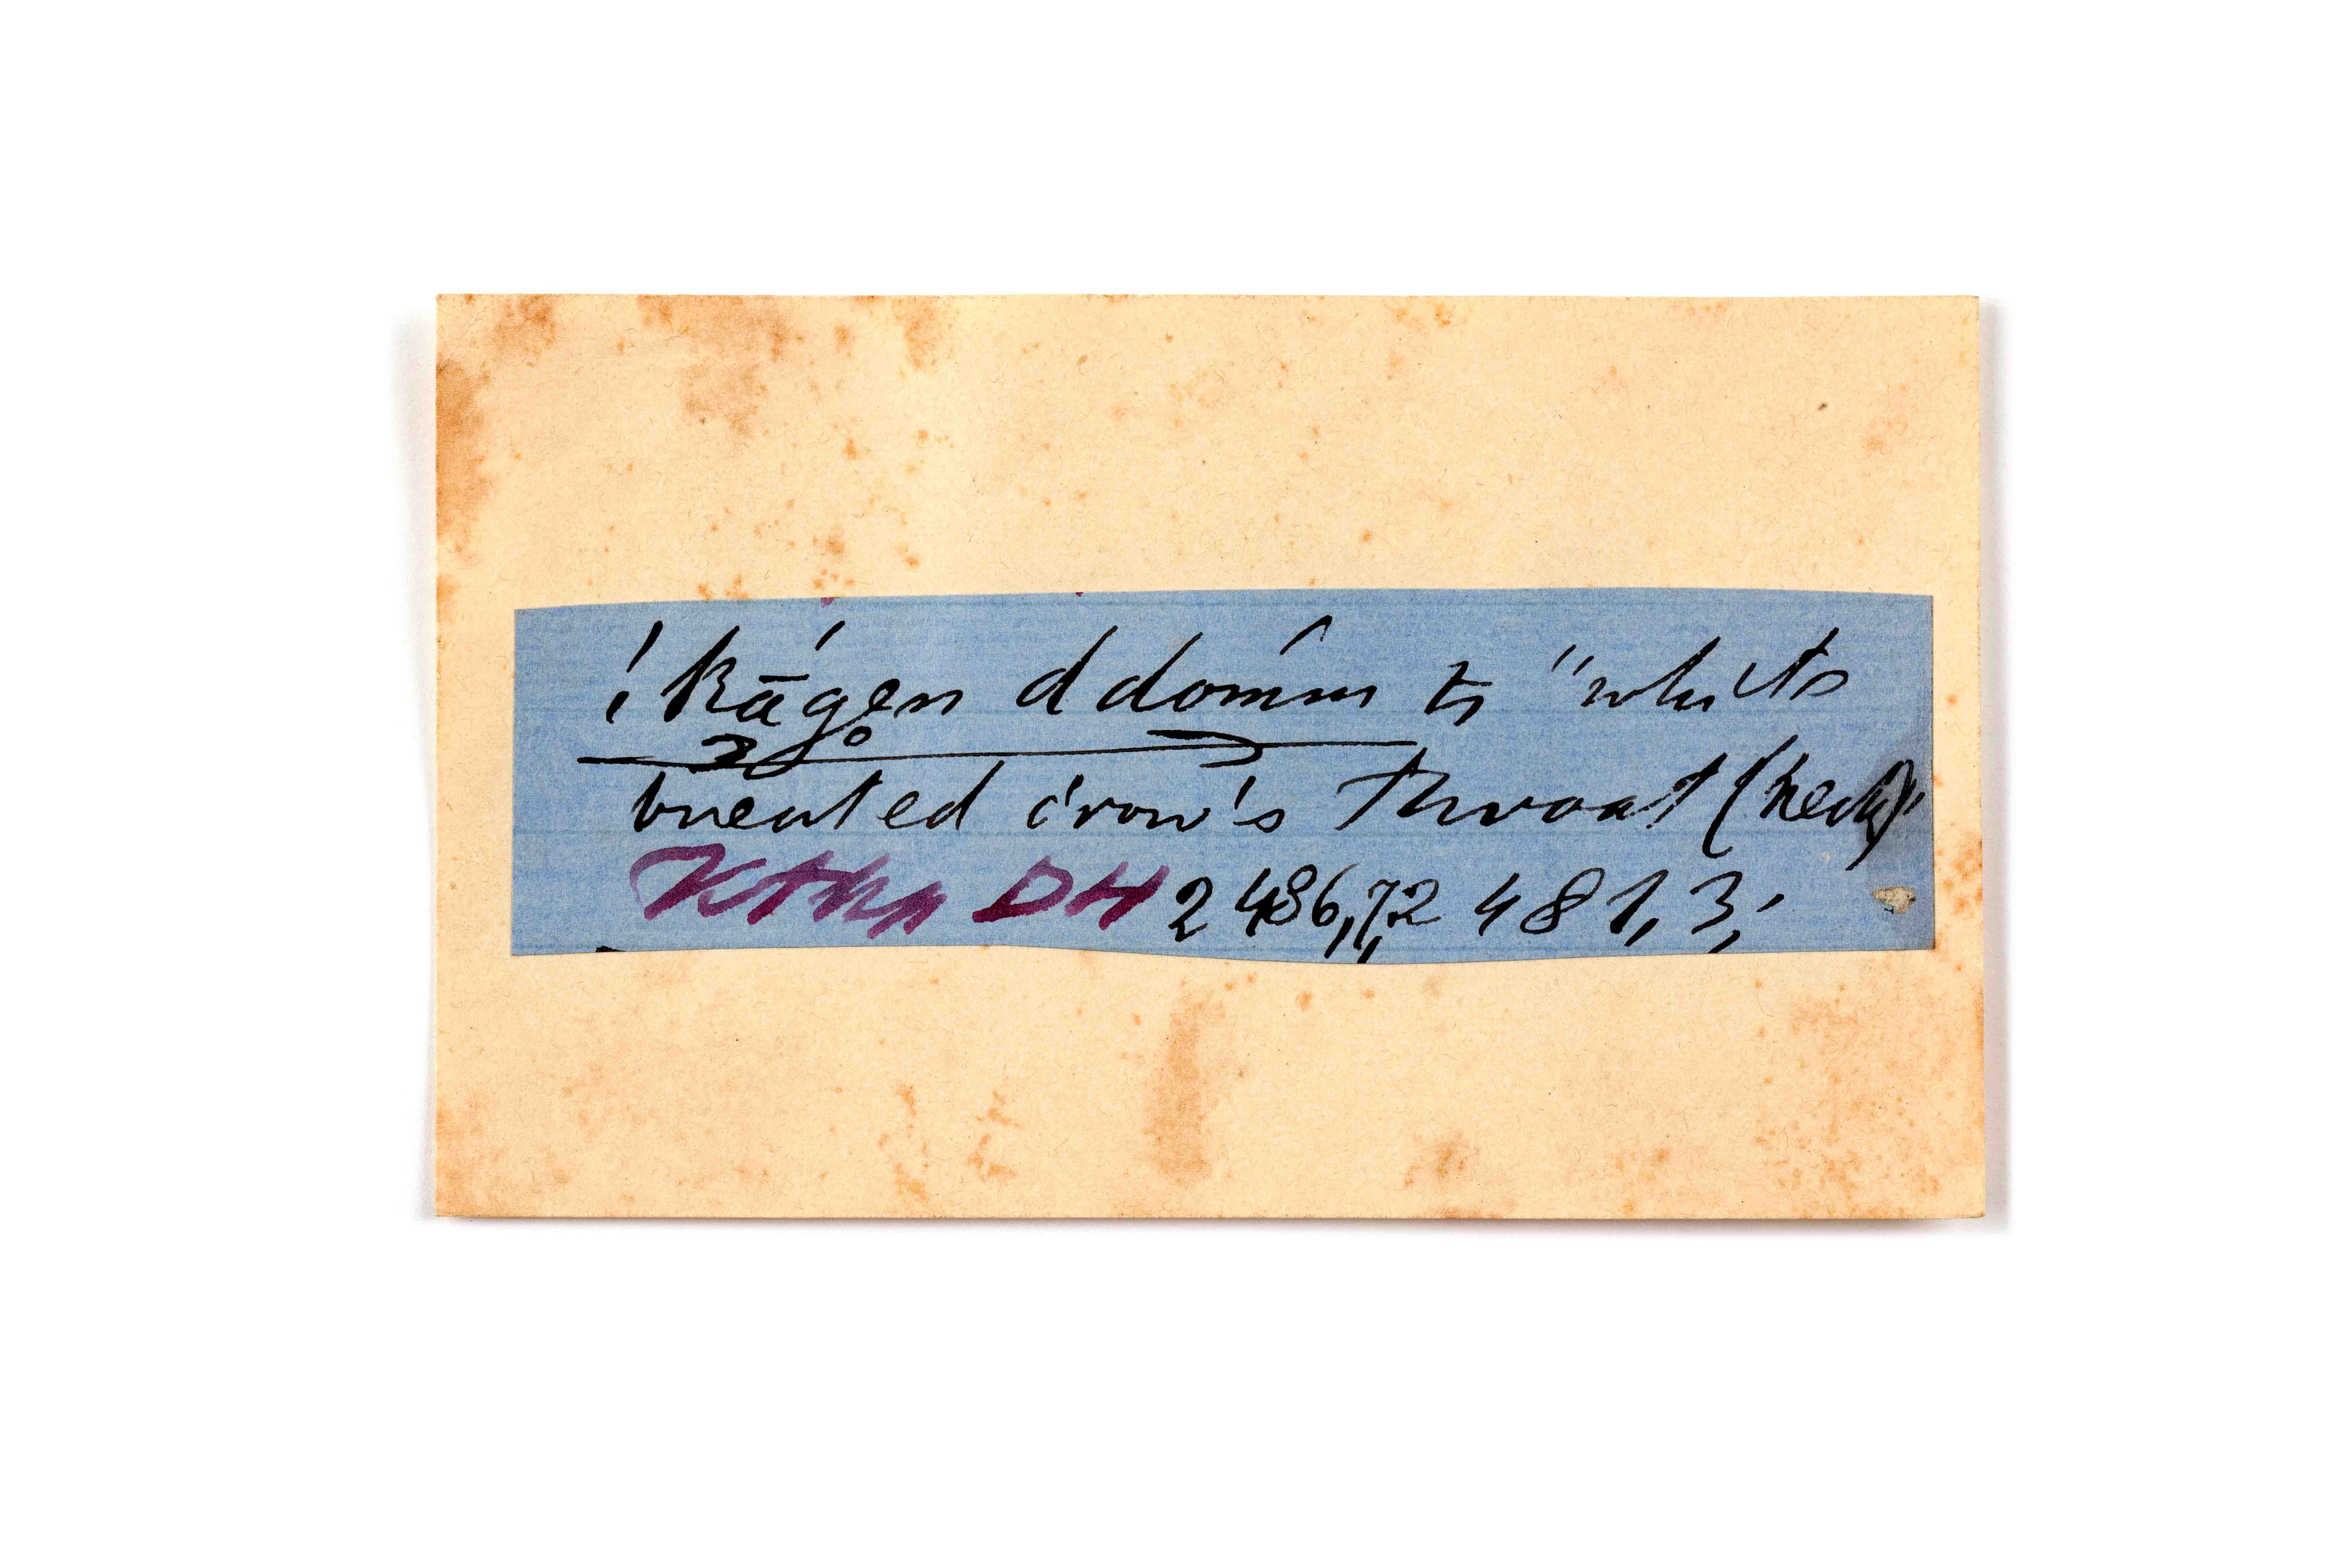 !kāgen ddómm ts "white
breasted crow's throat (neck)"
Katkop DH 2 486, 7, 2 481, 3,'